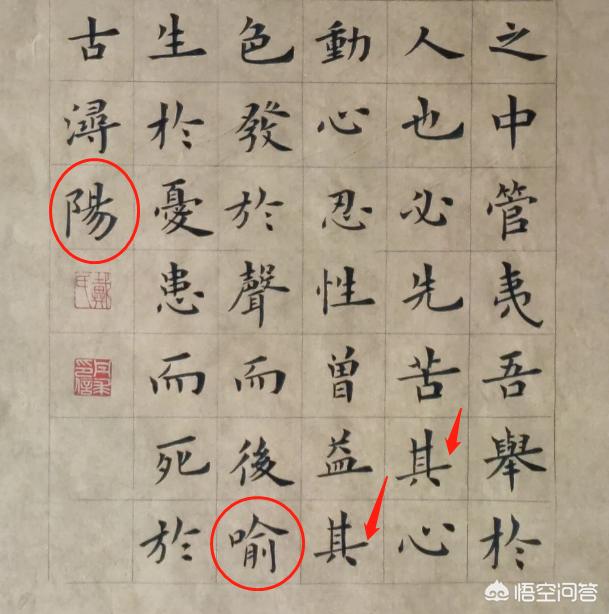 之中管夷吾舉於
人也必先苦其心
動心忍性曾益其
色發於聲而後喻
生於憂患而死於
古潯陽
戴氏
悟空问答